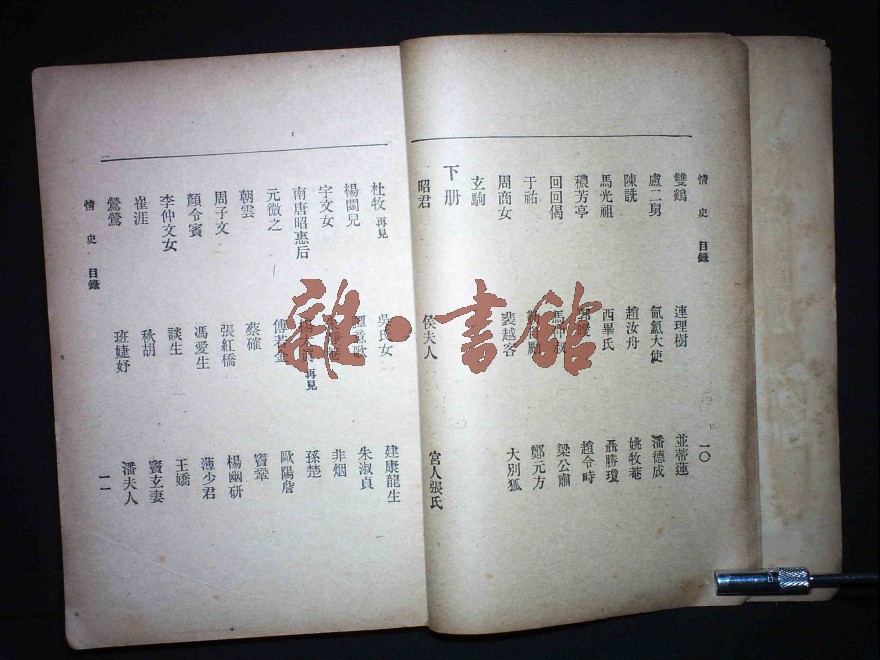 情史 目錄 一〇
雙鶴 連理樹 並蒂蓮
盧二舅 氤氳大使 潘德成
陳詵 趙汝舟 姚牧菴
馬光祖 西畢氏 聶勝瓊
穠芳亭 趙令時
回回偈 馬仲叔 梁公肅
于祐 鄭元方
周商女 裴越客 大別狐
玄駒
下册
昭君 侯夫人 宮人張氏
杜牧再見 吳氏女 建康龍生
楊閩兒 譚意歌 朱淑貞
宇文女 非烟
南唐昭惠后 再見 孫楚
元微之 傅若金 歐陽詹
朝雲 蔡確 竇鞏
周子文 張紅橋 楊幽妍
顏令賓 馮愛生 薄少君
李仲文女 談生 王嬌
崔涯 秋胡 竇玄妻
鶯鶯 班婕妤 潘夫人
情史 目錄 一一
雜·書館